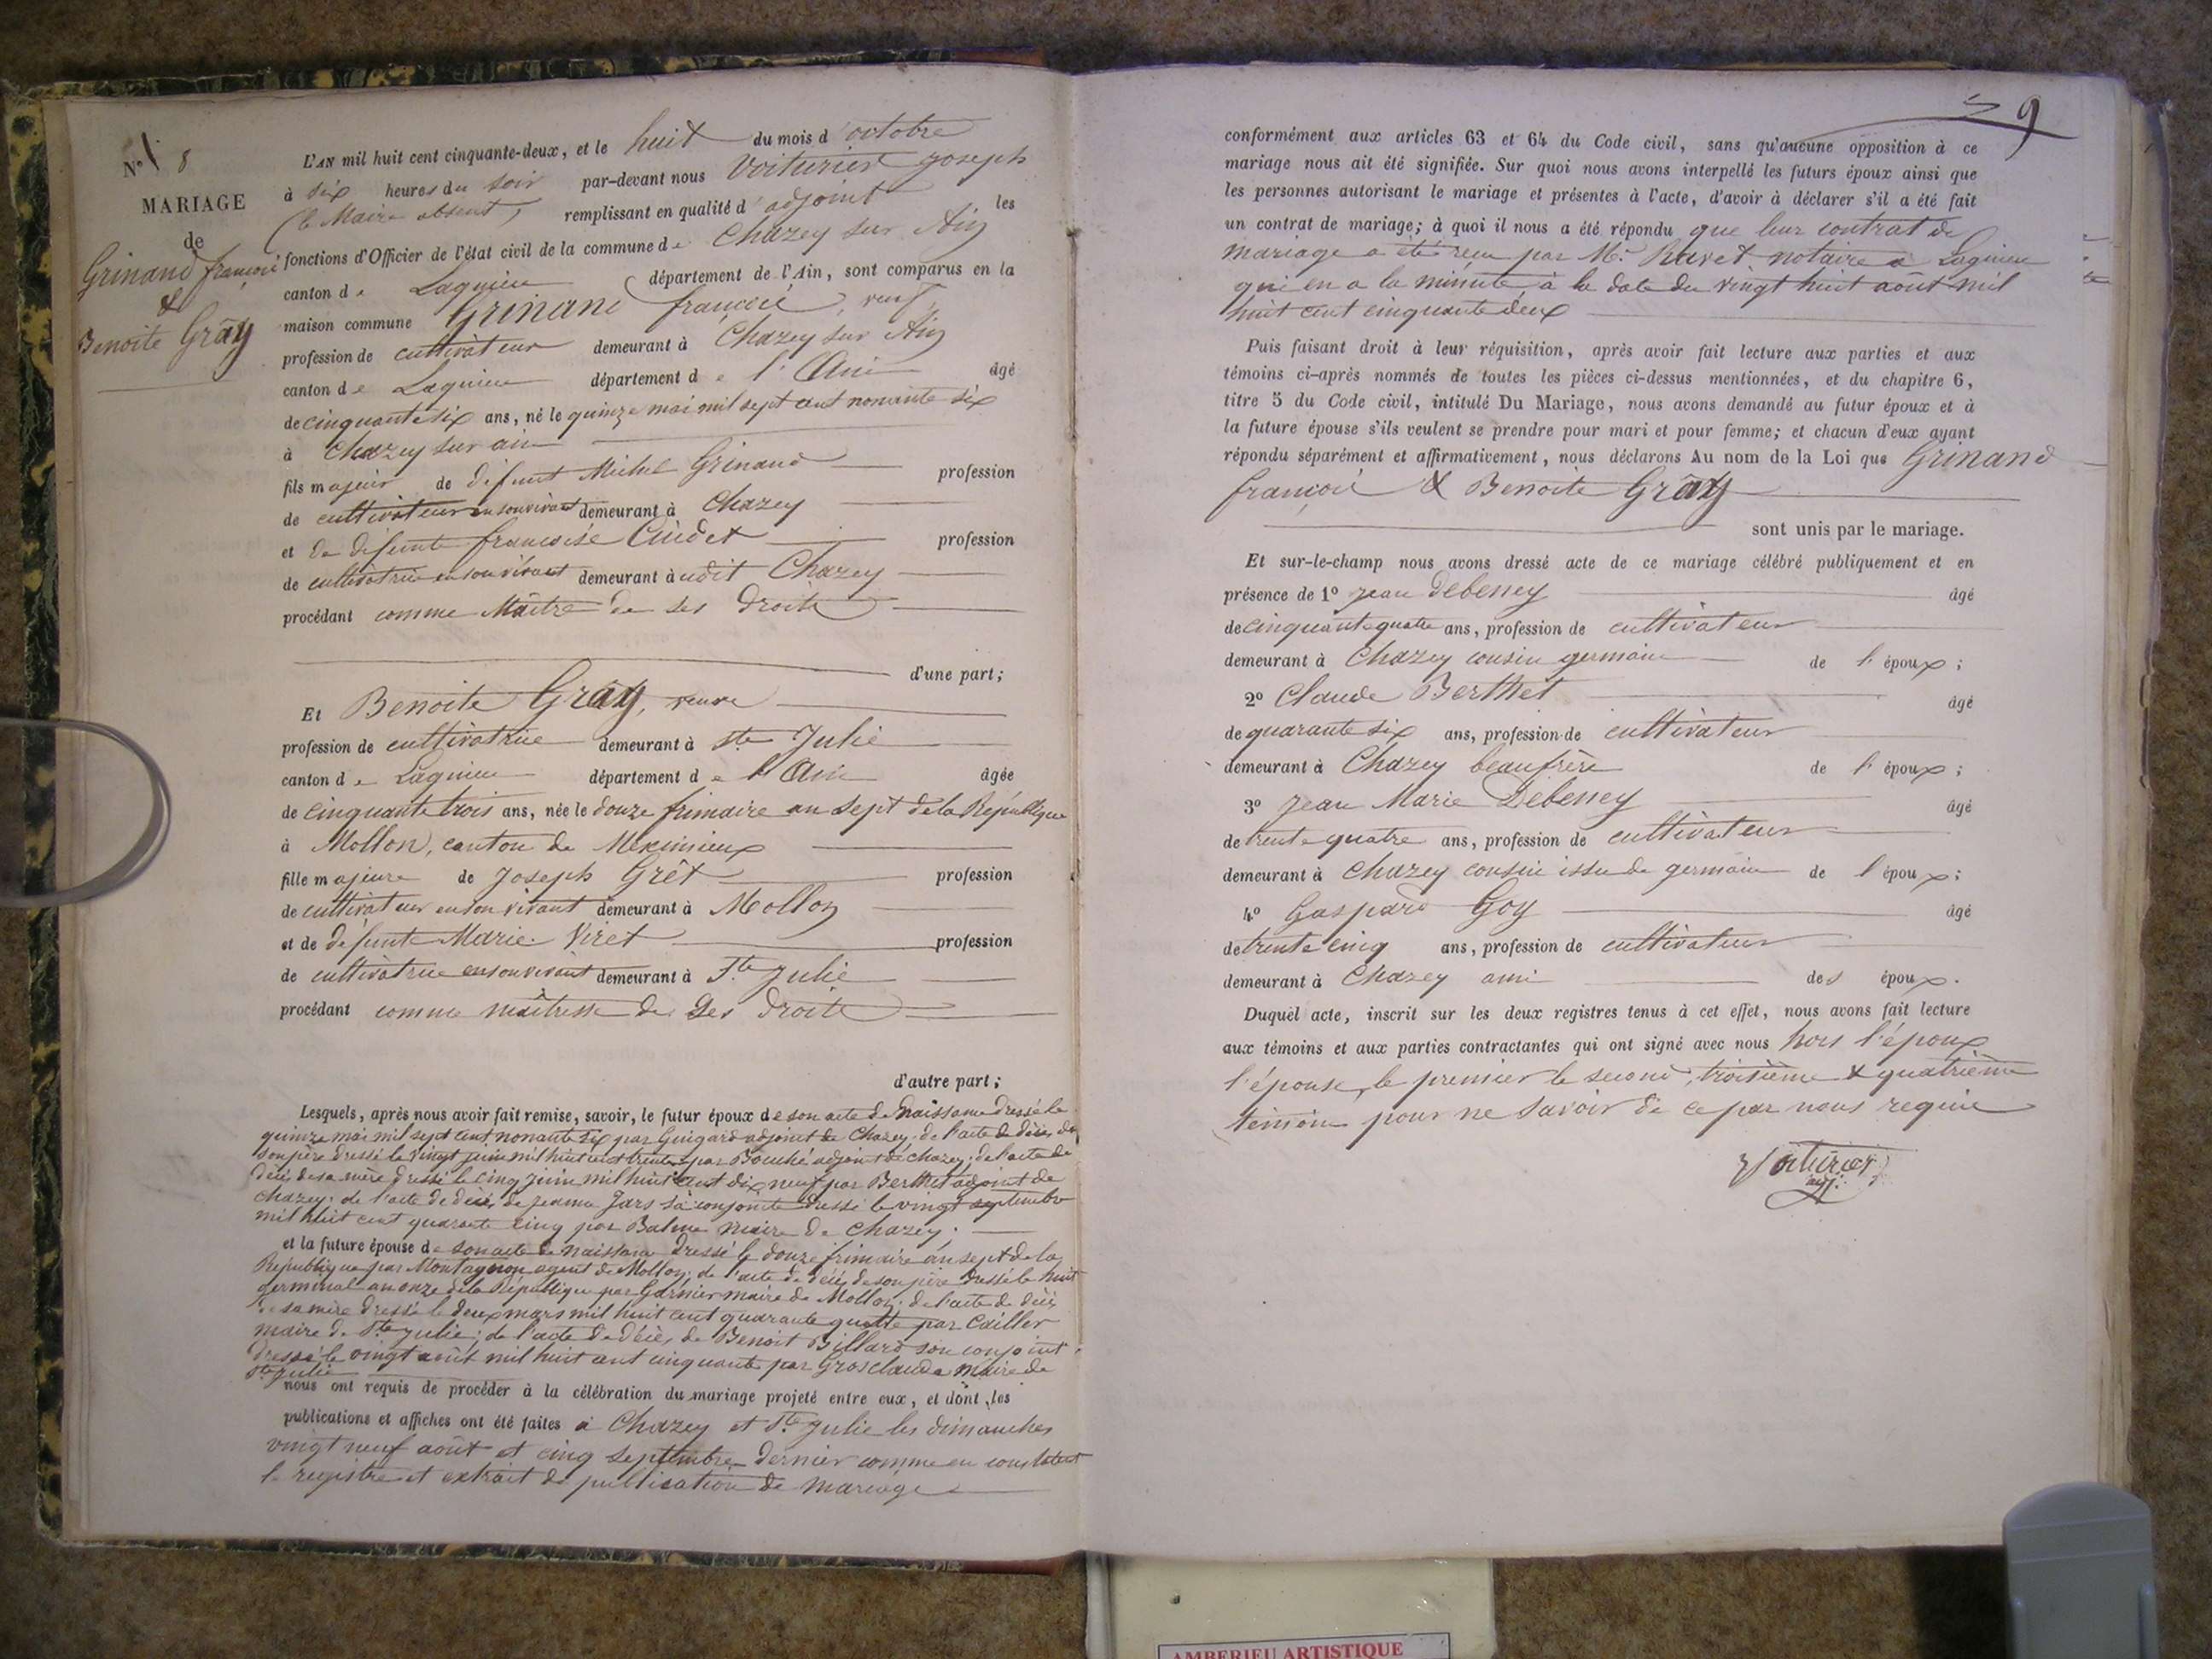 N° 8
MARIAGE
de
Grinand françois
&
Benoite Gräy
L'AN mil huit cent cinquante-deux, et le huit du mois d'octobre
à six heures du soir par-devant nous Voiturier Joseph
(le Maire absent) remplissant en qualité d'adjoint les
fonctions d'Officier de l'état civil de la commune de Chazey sur Ain
canton de Lagnieu département de l'Ain, sont comparus en la
maison commune Grinand françois, veuf,
profession de cultivateur demeurant à Chazey sur Ain
canton de Lagnieu département de l'Ain âgé
de cinquante six ans, né le quinze mai mil sept cent nonante six
à Chazey sur ain
fils majeur de défunt Michel Grinand profession
de cultivateur en son vivant demeurant à Chazey
et de defunte francoise profession
de cultivatrice en son vivant demeurant à udit Chazey
procédant comme Maitre de ses droits
d'une part;
Et Benoite Gräy, veuve
profession de cultivatrice demeurant à Ste Julie
canton de Lagnieu département de l'Ain âgée
de cinquante trois ans, née le douze frimaire an sept de la République
à Mollon, canton de Meximieux
fille majeure de Joseph Grêt profession
de cultivateur en son vivant demeurant à Mollon
et de defunte Marie Viret profession
de cultivatrice en son vivant demeurant à Ste Julie
procédant comme maitresse de ses droits
d'autre part;
Lesquels, après nous avoir fait remise, savoir, le futur époux de son acte de Naissance dressé le
quinze mai mil sept cent nonante six par Guigard adjoint de Chazey; de l'acte de décès de
son père dressé le vingt juin mil huit cent trente par Bouché adjoint de chazey; de l'acte de
décès de sa mère dressé le cinq juin mil huit cent dix neuf par Berthet adjoint de
Chazey; de l'acte de décès de jeanne Jars sa conjointe dressé le vingt septembre
mil huit cent quarante cinq par Balme maire de Chazey;
et la future épouse de son acte de naissance dressé le douze frimaire an sept de la
République par Montagnon agent de Mollon; de l'acte de décès de son père dressé le huit
germinal an onze de la République par Garnier maire de Mollon; de l'acte de décès
de sa mère dressé le deux mars mil huit cent quarante quatre par Cailler
maire de Ste Julie; de l'acte de décès de Benoit Billard son conjoint
dressé le vingt août mil huit cent cinquante par Grosclaude Maire de
Ste Julie
nous ont requis de procéder à la célébration du mariage projeté entre eux, et dont les
publications et affiches ont été faites à Chazey et Ste Julie les dimanches
vingt neuf août et cinq septembre dernier comme en constatent
le registre et extrait de publication de mariage
9
conformément aux articles 63 et 64 du Code civil, sans qu'aucune opposition à ce
mariage nous ait été signifiée. Sur quoi nous avons interpellé les futurs époux ainsi que
les personnes autorisant le mariage et présentes à l'acte, d'avoir à déclarer s'il a été fait
un contrat de mariage; à quoi il nous a été répondu que leur contrat de
mariage a été reçu par Me Ravet notaire à Lagnieu
qui en a la minute à la date du vingt huit août mil
huit cent cinquante deux
Puis faisant droit à leur réquisition, après avoir fait lecture aux parties et aux
témoins ci-après nommés de toutes les pièces ci-dessus mentionnées, et du chapitre 6,
titre 5 du Code civil, intitulé Du Mariage, nous avons demandé au futur époux et à
la future épouse s'ils veulent se prendre pour mari et pour femme; et chacun d'eux ayant
répondu séparément et affirmativement, nous déclarons Au nom de la Loi que Grinand
françois & Benoite Gräy
sont unis par le mariage.
Et sur-le-champ nous avons dressé acte de ce mariage célébré publiquement et en
présence de 1° Jean Debeney âgé
de cinquante quatre ans, profession de cultivateur
demeurant à Chazey cousin germain de l'époux;
2° Claude Berthet âgé
de quarante six ans, profession de cultivateur
demeurant à Chazey beaufrère de l'époux;
3° Jean Marie Debeney âgé
de trente quatre ans, profession de cultivateur
demeurant à Chazey cousin issu de germain de l'époux;
4° Gaspard Goy âgé
de trente cinq ans, profession de cultivateur
demeurant à Chazey ami des époux.
Duquel acte, inscrit sur les deux registres tenus à cet effet, nous avons fait lecture
aux témoins et aux parties contractantes qui ont signé avec nous hors l'époux
l'épouse, le premier le second, troisième & quatrième
témoins pour ne savoir de ce par nous requis
Voiturier
adj.
AMBERIEU ARTISTIQUE